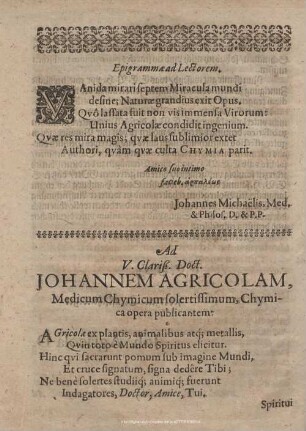 Epigramma ad Lectorem.
VAnida mirari septem Miracula mundi
desine; Naturæ grandius exit Opus,
Qvô lassata fuit non vis immensa Virorum:
Unius Agricolæ condidit ingenium.
Qvæ res mira magis; qvæ laus sublimior extet
Authori, qvàm qvæ culta CHYMIA parit.
Amico suo intimo
faceb.
Johannes Michaëlis. Med.
& Philos, D. & P.P.
Ad
V. Clariß. Doct.
JOHANNEM AGRICOLAM,
Medicum Chymicum solertissimum, Chymi-
ca opera publicantem:
AGricolæ ex plantis, animalibus atq; metallis,
Qui toto è Mundo Spiritus elicitur.
Hinc qvi sacrarunt pomum sub imagine Mundi,
Et cruce signatum, signa dedêre Tibi;
Ne benè solertes studiiq; animiq; fuerunt
Indagatores, Doctor, Amice, Tui,
Spiritui